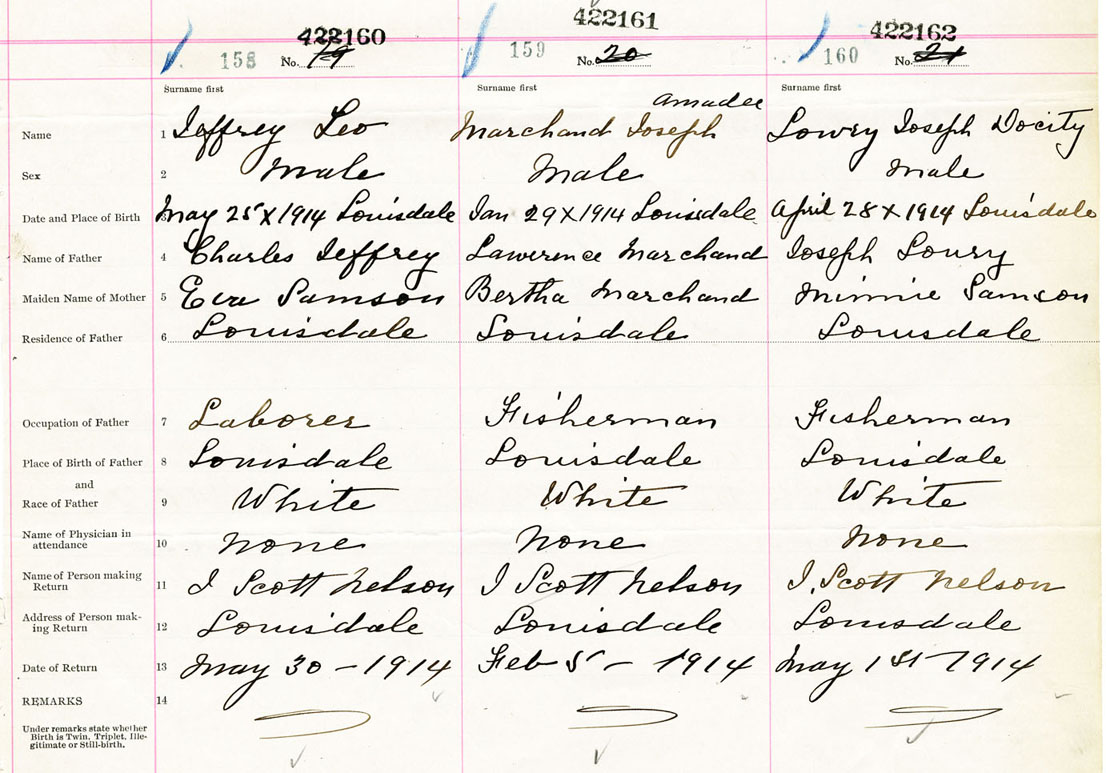 422160 422161 422162
158 No. 19 159 No. 20 160 No. 21
Surname first Surname first Surname first
Amadee
Name 1 Jeffrey Leo Marchand Joseph Lowry Joseph Docity
Sex 2 Male Male Male
Date and Place of Birth 3 May 25 X 1914 Louisdale Jan 29 X 1914 Louisdale April 28 X 1914 Louisdale
Name of Father 4 Charles Jeffrey Lawerence Marchand Joseph Lowry
Maiden Name of Mother 5 Eva Samson Bertha Marchand Minnie Samson
Residence of Father 6 Louisdale Louisdale Louisdale
Occupation of Father 7 Laborer Fisherman Fisherman
Place of Birth of Father 8 Louisdale Louisdale Louisdale
and
Race of Father 9 White White White
Name of Physician in
attendance 10 None None None
Name of Person making
Return 11 J Scott Nelson J Scott Nelson J. Scott Nelson
Address of Person mak-
ing Return 12 Louisdale Louisdale Louisdale
Date of Return 13 May 30 - 1914 Feb 5 - 1914 May 1st 1914
REMARKS 14
Under remarks state whether
Birth is Twin, Triplet, Ille-
gitimate or Still-birth.